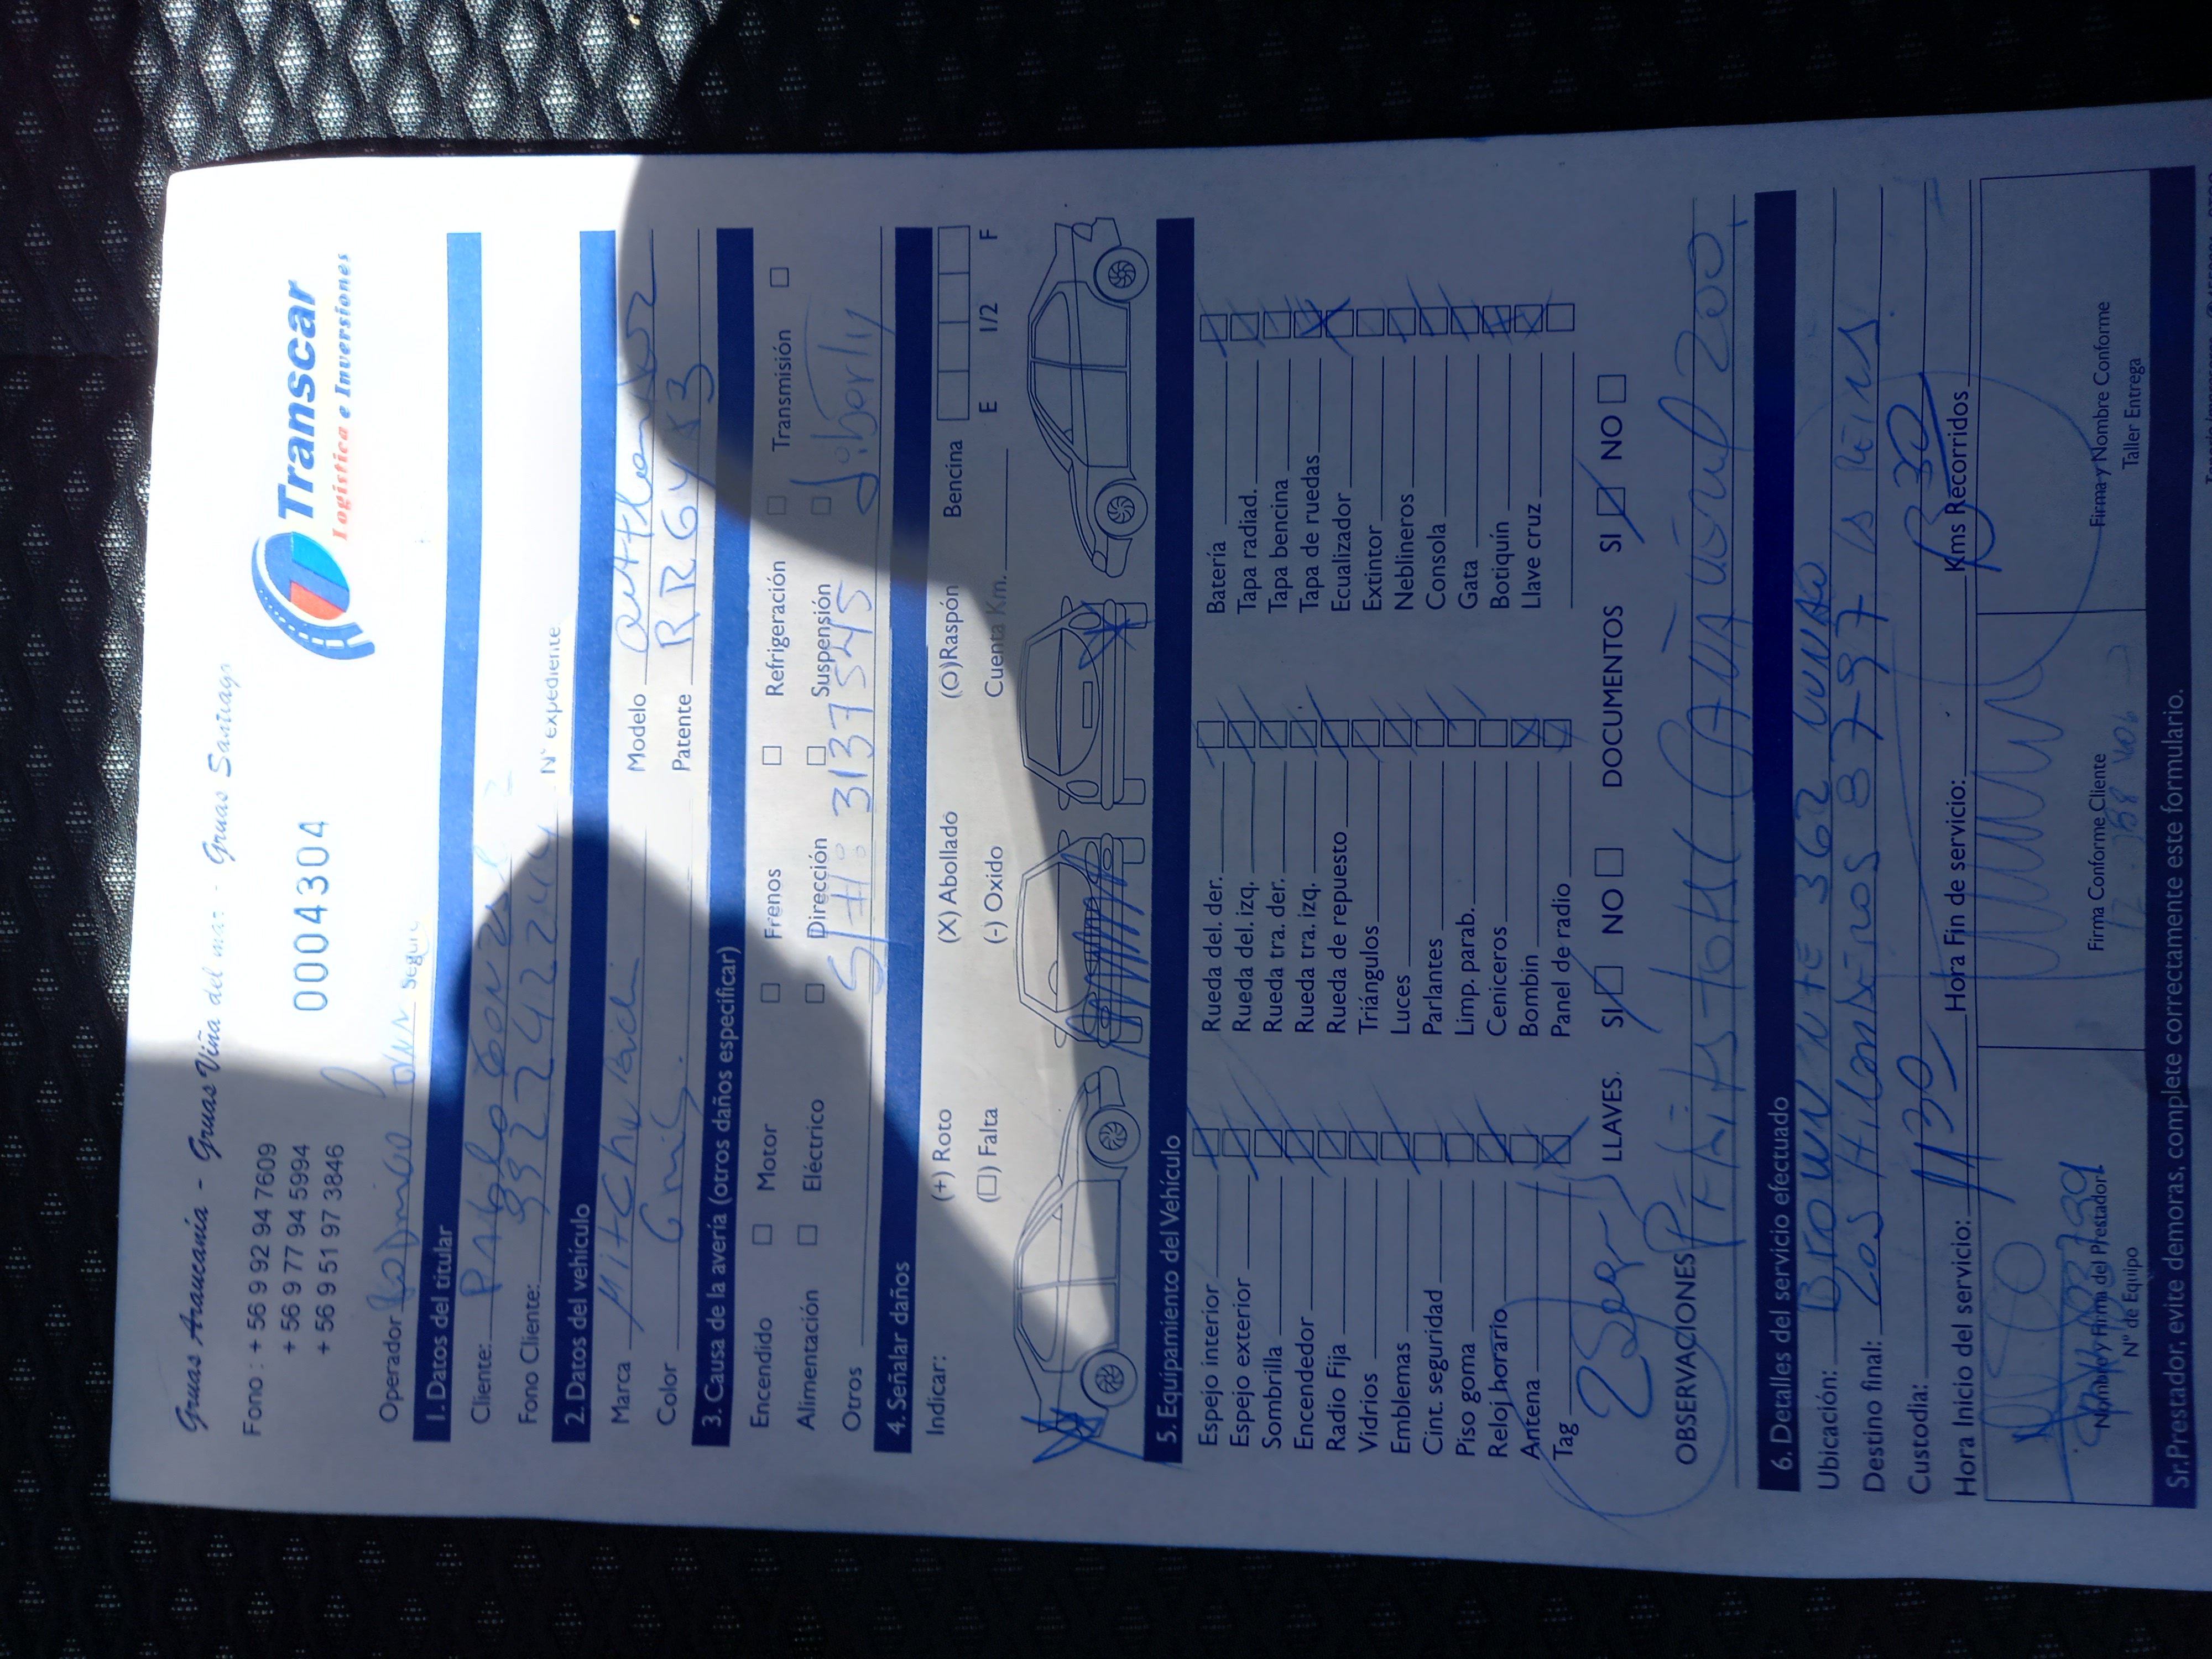 Gruas Araucanía - Gruas Viña del mar - Gruas Santiago
Fono : + 56 9 92 94 7609
+ 56 9 77 94 5994
+ 56 9 51 97 3846
0004304
Transcar
Logística e Inversiones
Operador Rodrigo
1. Datos del titular
Cliente: Pablo Gonzal
Fono Cliente: N° expediente
2. Datos del vehículo
Marca Mitchubichi Modelo outlander
Color Gris. Patente
3. Causa de la avería (otros daños especificar)
Encendido Motor Frenos Refrigeración Transmisión
Alimentación Eléctrico Dirección Suspensión
Otros SH: 3137545 Liberly
4. Señalar daños
Indicar: (+) Roto (X) Abollado (O)Raspón Bencina
(□) Falta (-) Oxido Cuenta Km. E 1/2 F
5. Equipamiento del Vehículo
Espejo interior Rueda del. der. Batería
Espejo exterior Rueda del. izq. Tapa radiad.
Sombrilla Rueda tra. der. Tapa bencina
Encendedor Rueda tra. izq. Tapa de ruedas
Radio Fija Rueda de repuesto Ecualizador
Vidrios Triángulos Extintor
Emblemas Luces Neblineros
Cint. seguridad Parlantes Consola
Piso goma Limp. parab. Gata
Reloj horario Ceniceros Botiquín
Antena Bombin Llave cruz
Tag Panel de radio
LLAVES. SI NO DOCUMENTOS SI NO
OBSERVACIONES
6. Detalles del servicio efectuado
Ubicación: Brown Nte 362
Destino final: Los Hilanderos 8797 la Reina
Custodia:
Hora Inicio del servicio: 1130 Hora Fin de servicio: Kms Recorridos 1330
Nombre y Firma del Prestador
N° de Equipo
Firma Conforme Cliente
Firma y Nombre Conforme
Taller Entrega
Sr. Prestador, evite demoras, complete correctamente este formulario.